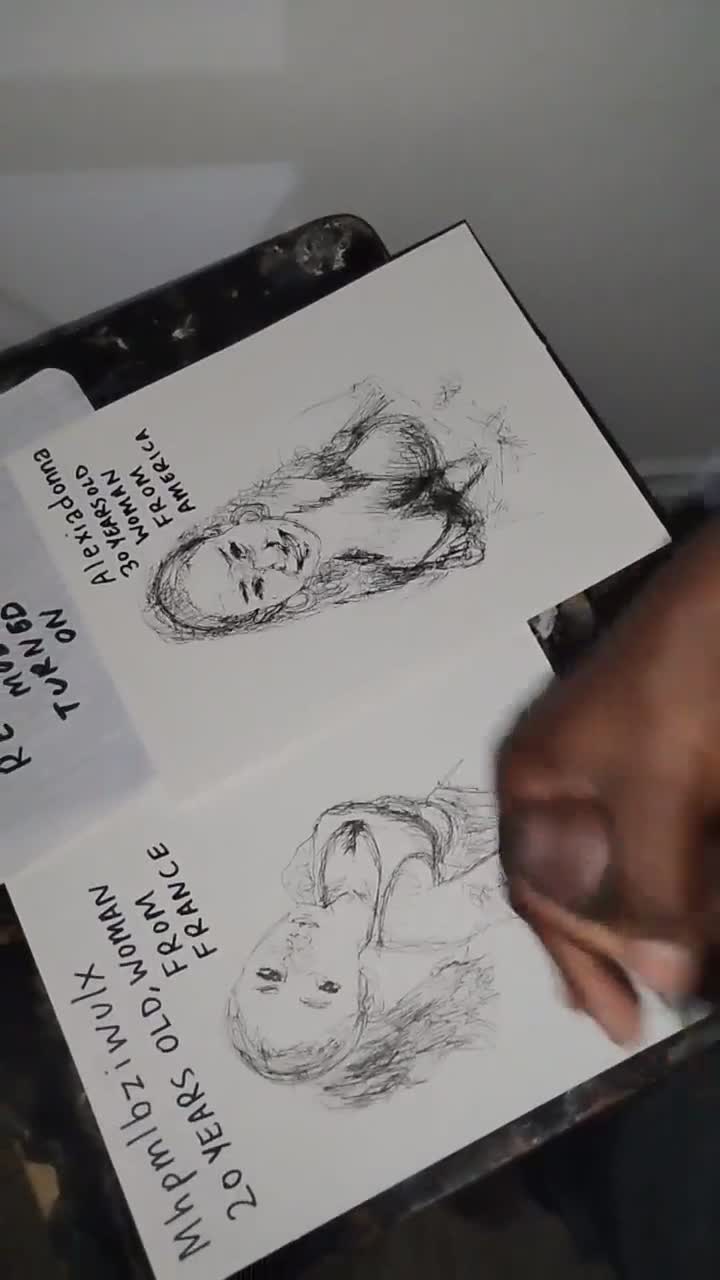 RE MO
TURNED
ON
Alexiadonna
30 YEARS OLD
WOMAN
FROM
AMERICA
Mhpmlbziwulx
20 YEARS OLD, WOMAN
FROM
FRANCE